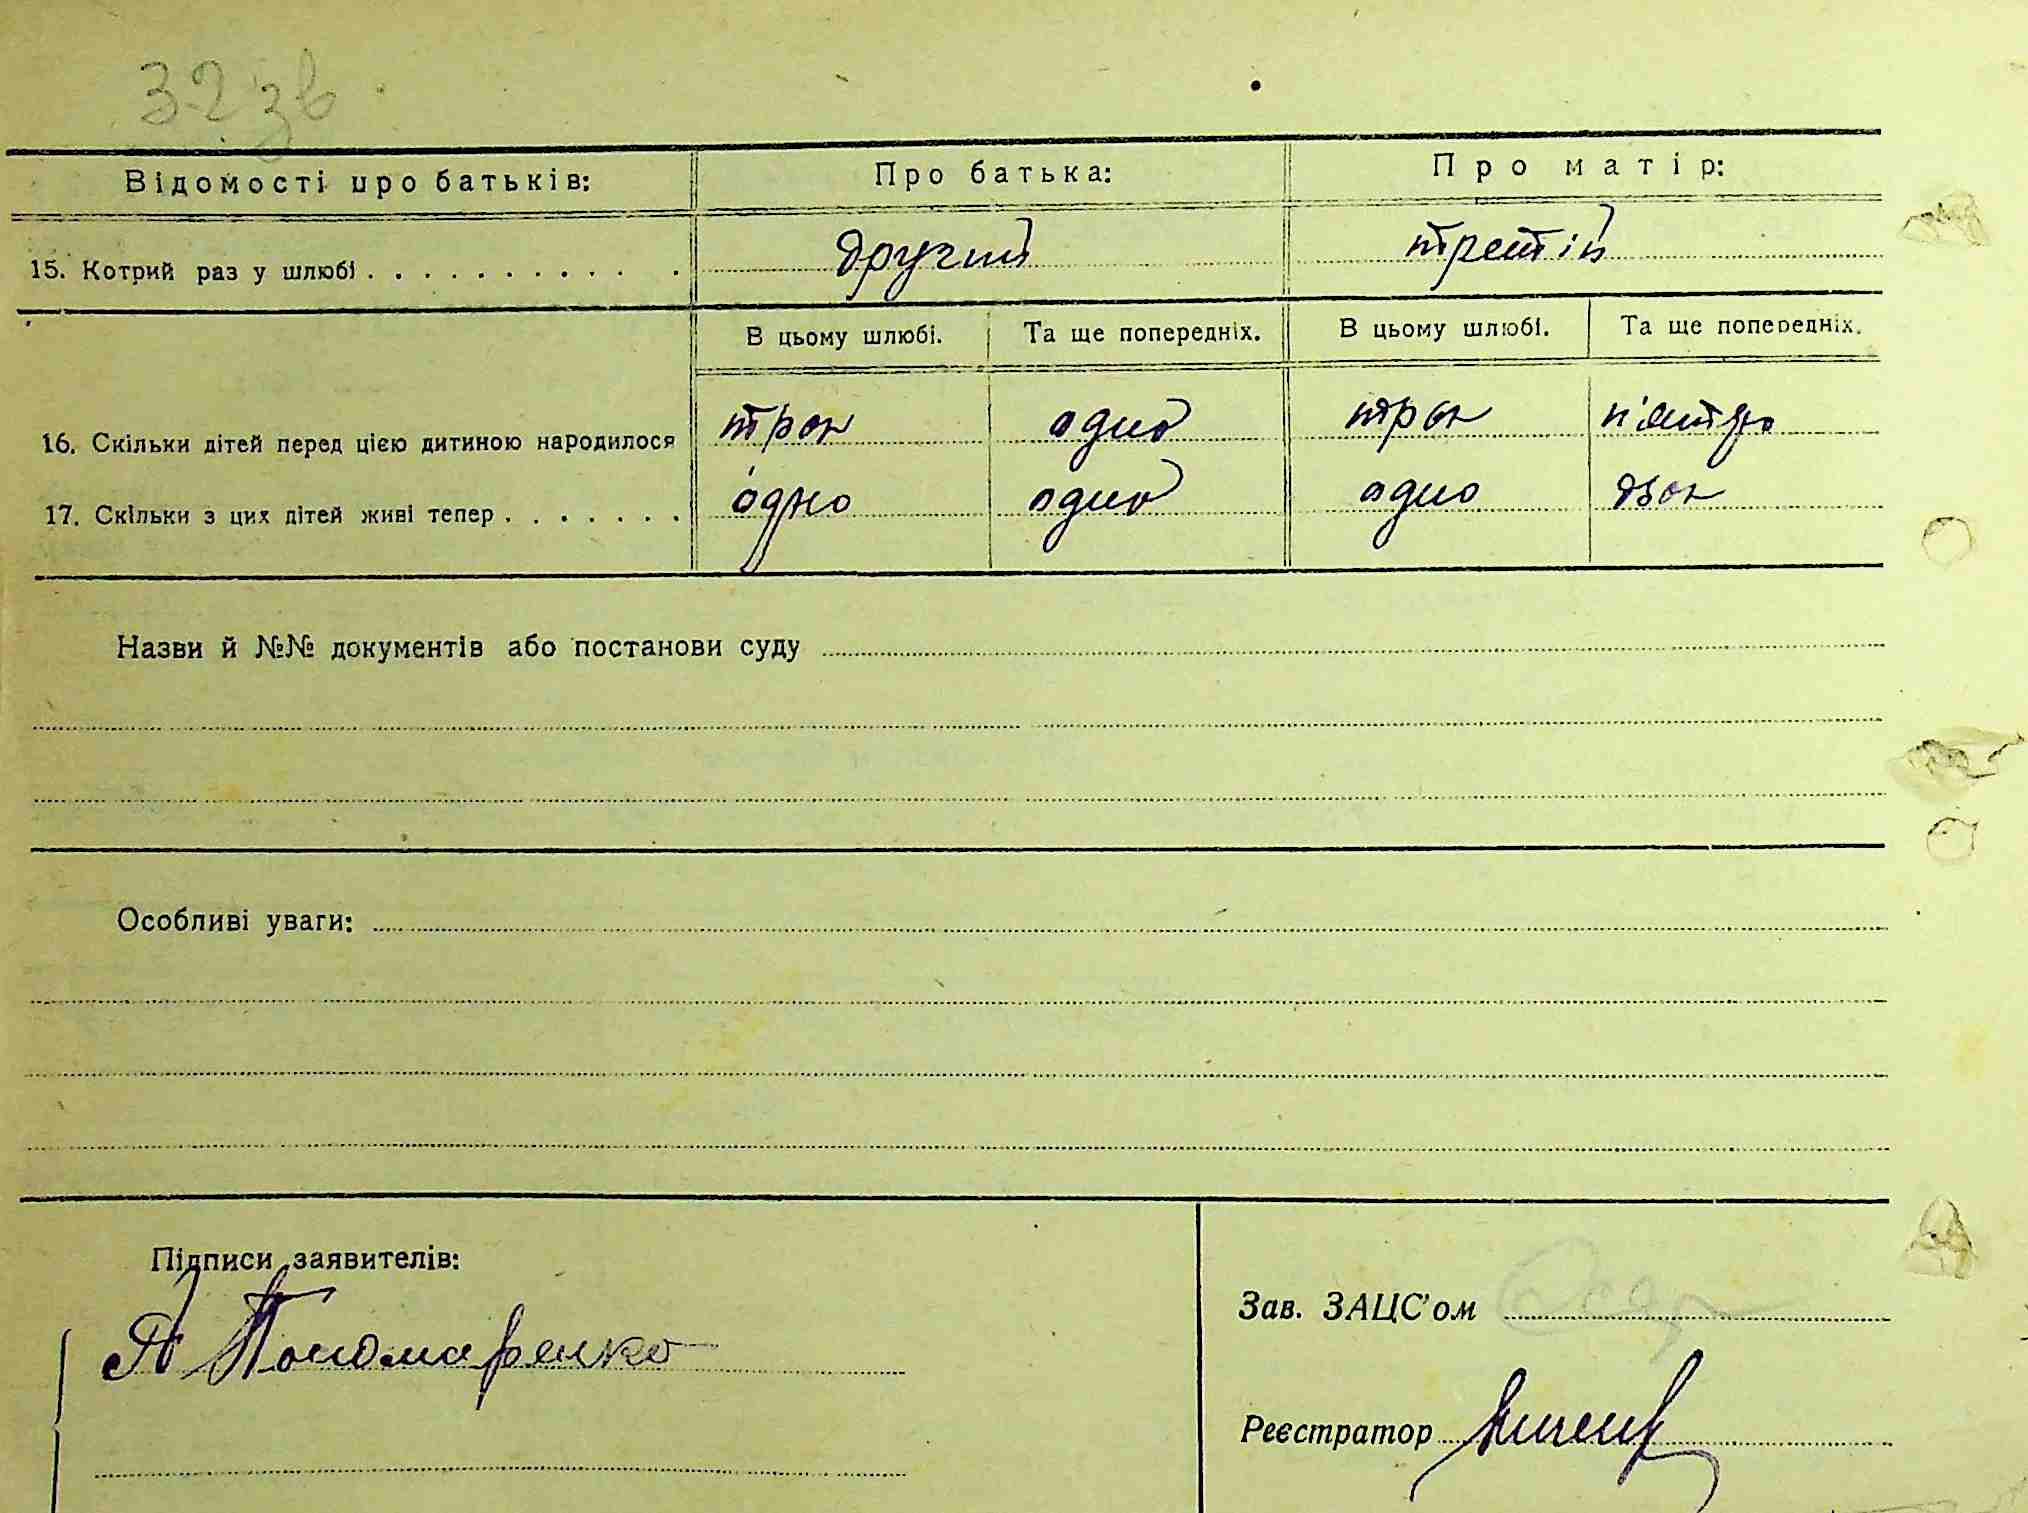 32 зв
Відомості про батьків: Про батька: Про матір:
15. Котрий раз у шлюбі . . . . . . . . . . . . другий третій
В цьому шлюбі. Та ще попередніх. В цьому шлюбі. Та ще попередніх.
16. Скільки дітей перед цією дитиною народилося троє одно троє п'ятеро
17. Скільки з цих дітей живі тепер . . . . . . . одно одно одно двоє
Назви й №№ документів або постанови суду
Особливі уваги:
Підписи заявителів:
Пономаренко
Зав. ЗАЦС'ом
Реєстратор